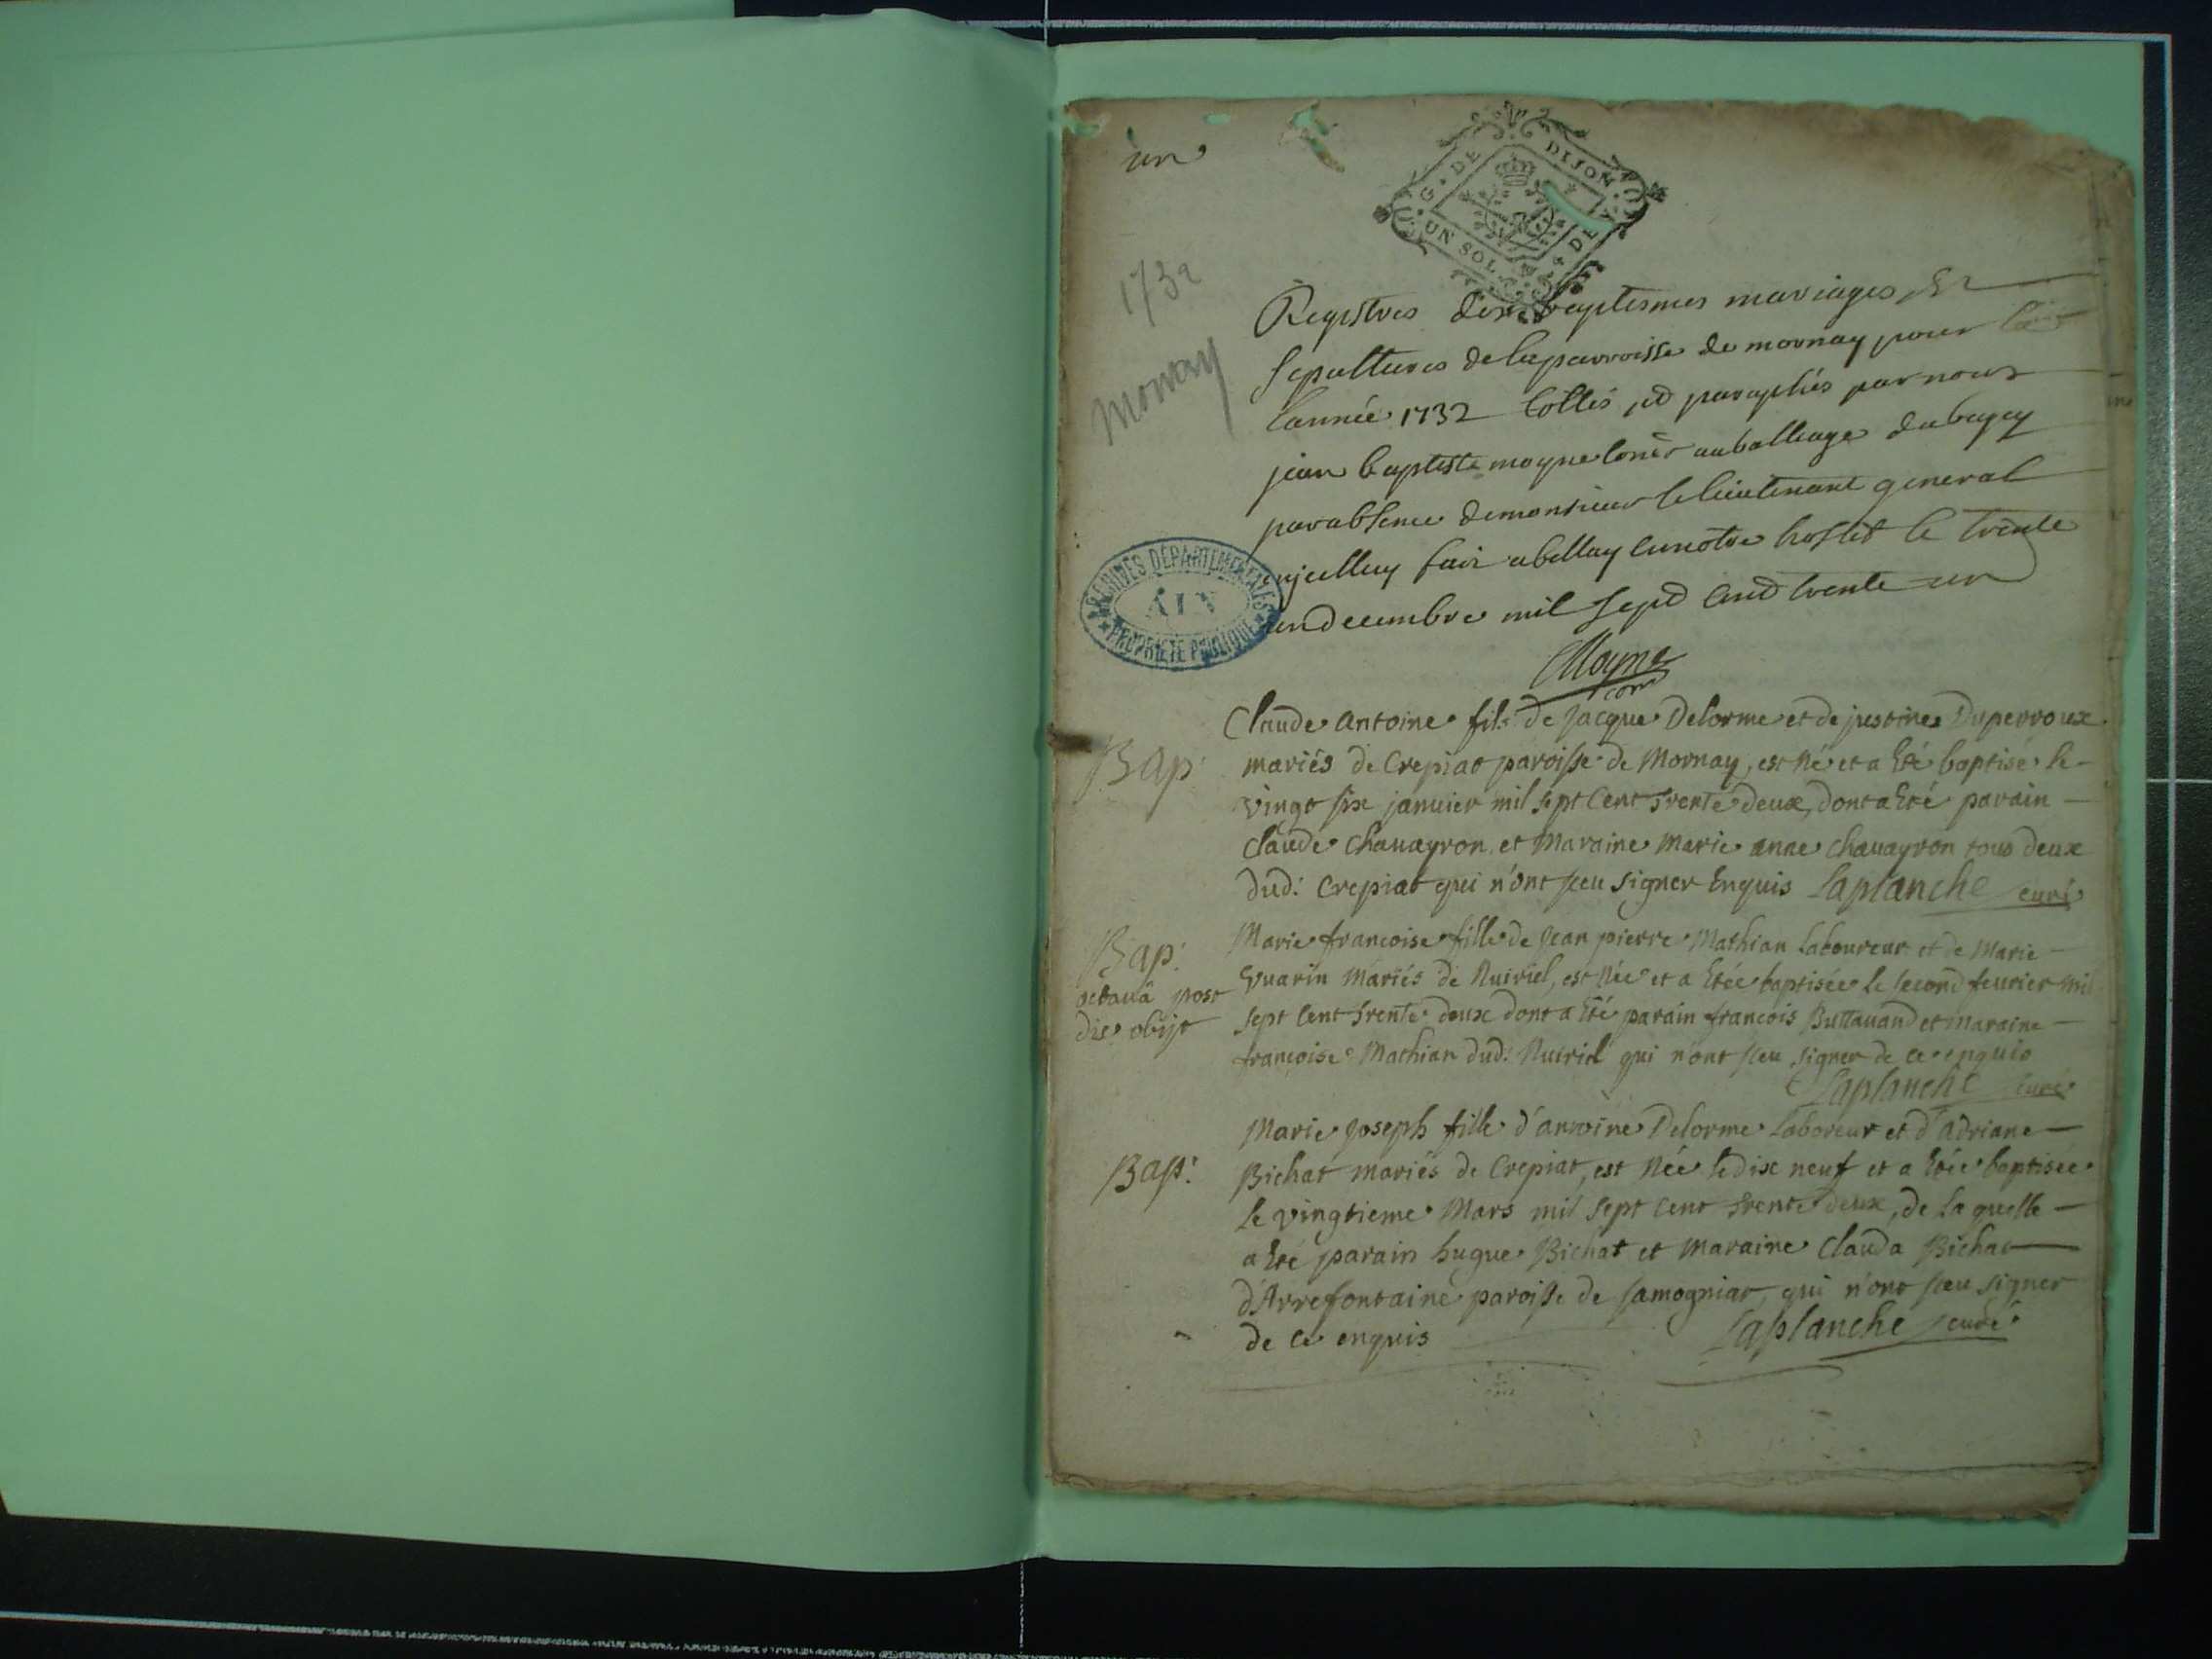 un
G. DE DIJON
UN SOL DE
1732
Mornay
Registres des baptesmes mariages et
sepultures de la parroisse de mornay pour
l'année 1732 cottés et paraphés par nous
jean baptiste moyne coner au balliage du bugey
par absence de monsieur le lieutenant general
enjcelluy fait a bellay en notre hostel le trente
un decembre mil sept cent trente un
Moyne
ARCHIVES DÉPARTEMENTALES
AIN
PROPRIÉTÉ PUBLIQUE
Bap:
Claude antoine fils de jacque Delorme et de justine Duperroux
mariés de Crepiat paroisse de Mornay, est né et a été baptisé le
vingt six janvier mil sept cent trente deux, dont a été parain
claude chauagron et maraine marie anne chauagron tous deux
dud: crepiat qui n'ont sceu signer enquis Laplanche curé
Bap:
octauâ post
die obijt
Marie francoise fille de jean pierre Mathian Laboureur et de Marie
Evuarin mariés de Nuiriel, est Née et a étée baptisée le second feurier mil
sept cent trente deux dont a été parain francois Buttauand et maraine
françoise Mathian dud: Nuiriel qui n'ont sceu signer de ce enquis
Laplanche curé
Bap:
Marie joseph fille d'antoine Delorme Laboreur et d'adriane
Bichat mariés de Crepiat, est Née le dix neuf et a étée baptisée
le vingtieme Mars mil sept cent trente deux, de laquelle
a été parain hugue Bichat et maraine Clauda Bichat
d'Arrefontaine paroisse de samogniat, qui n'ont sceu signer
de ce enquis Laplanche curé